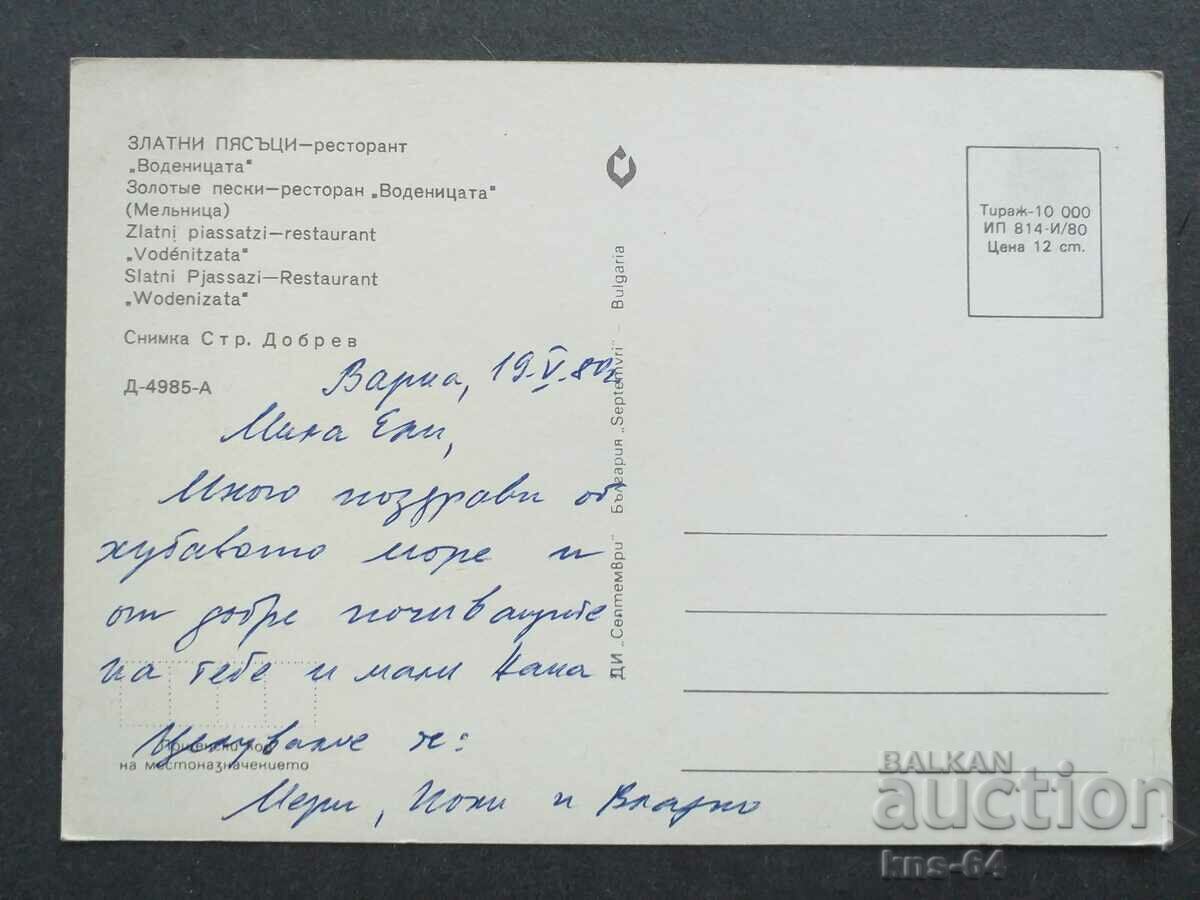 ЗЛАТНИ ПЯСЪЦИ—ресторант
„Воденицата"
Золотые пески—ресторан „Воденицата"
(Мельница)
Zlatni piassatzi—restaurant
„Vodénitzata"
Slatni Pjassazi—Restaurant
„Wodenizata"
Снимка Стр. Добрев
Д-4985-А
Варна, 19.V.80г
Мила Ени,
Много поздрави от
хубавото море и
от добре почиващите.
на тебе и мами Нана
Целуваме те:
Мери, и Владко
Пощенски код
на местоназначението
ДИ „Септември" България „Septemvri" – Bulgaria
Тираж-10 000
ИП 814-И/80
Цена 12 ст.
BALKAN
auction
kns-64